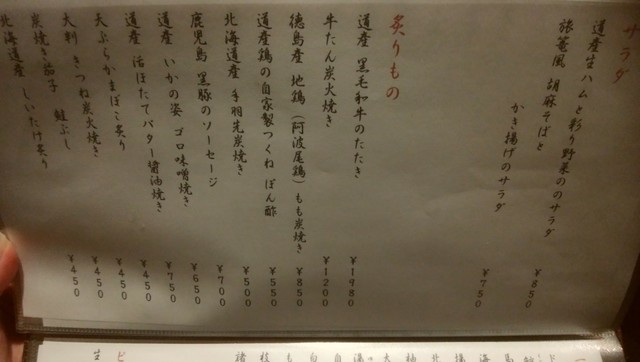 サラダ
道産生ハムと彩り野菜ののサラダ ¥850
旅篭風 胡麻そばと
かき揚げのサラダ ¥750
炙りもの
道産 黒毛和牛のたたき ¥1980
牛たん炭火焼き ¥1200
徳島産 地鶏(阿波尾鶏)もも炭焼き ¥850
道産鶏の自家製つくね ぽん酢 ¥550
北海道産 手羽先炭焼き ¥500
鹿児島 黒豚のソーセージ ¥700
道産 いかの姿 ゴロ味噌焼き ¥650
道産 活ほたてバター醤油焼き ¥750
天ぷらかまぼこ炙り ¥450
大判 きつね炭火焼き ¥450
炭焼き茄子 鮭ぶし ¥450
北海道産 しいたけ炙り ¥450